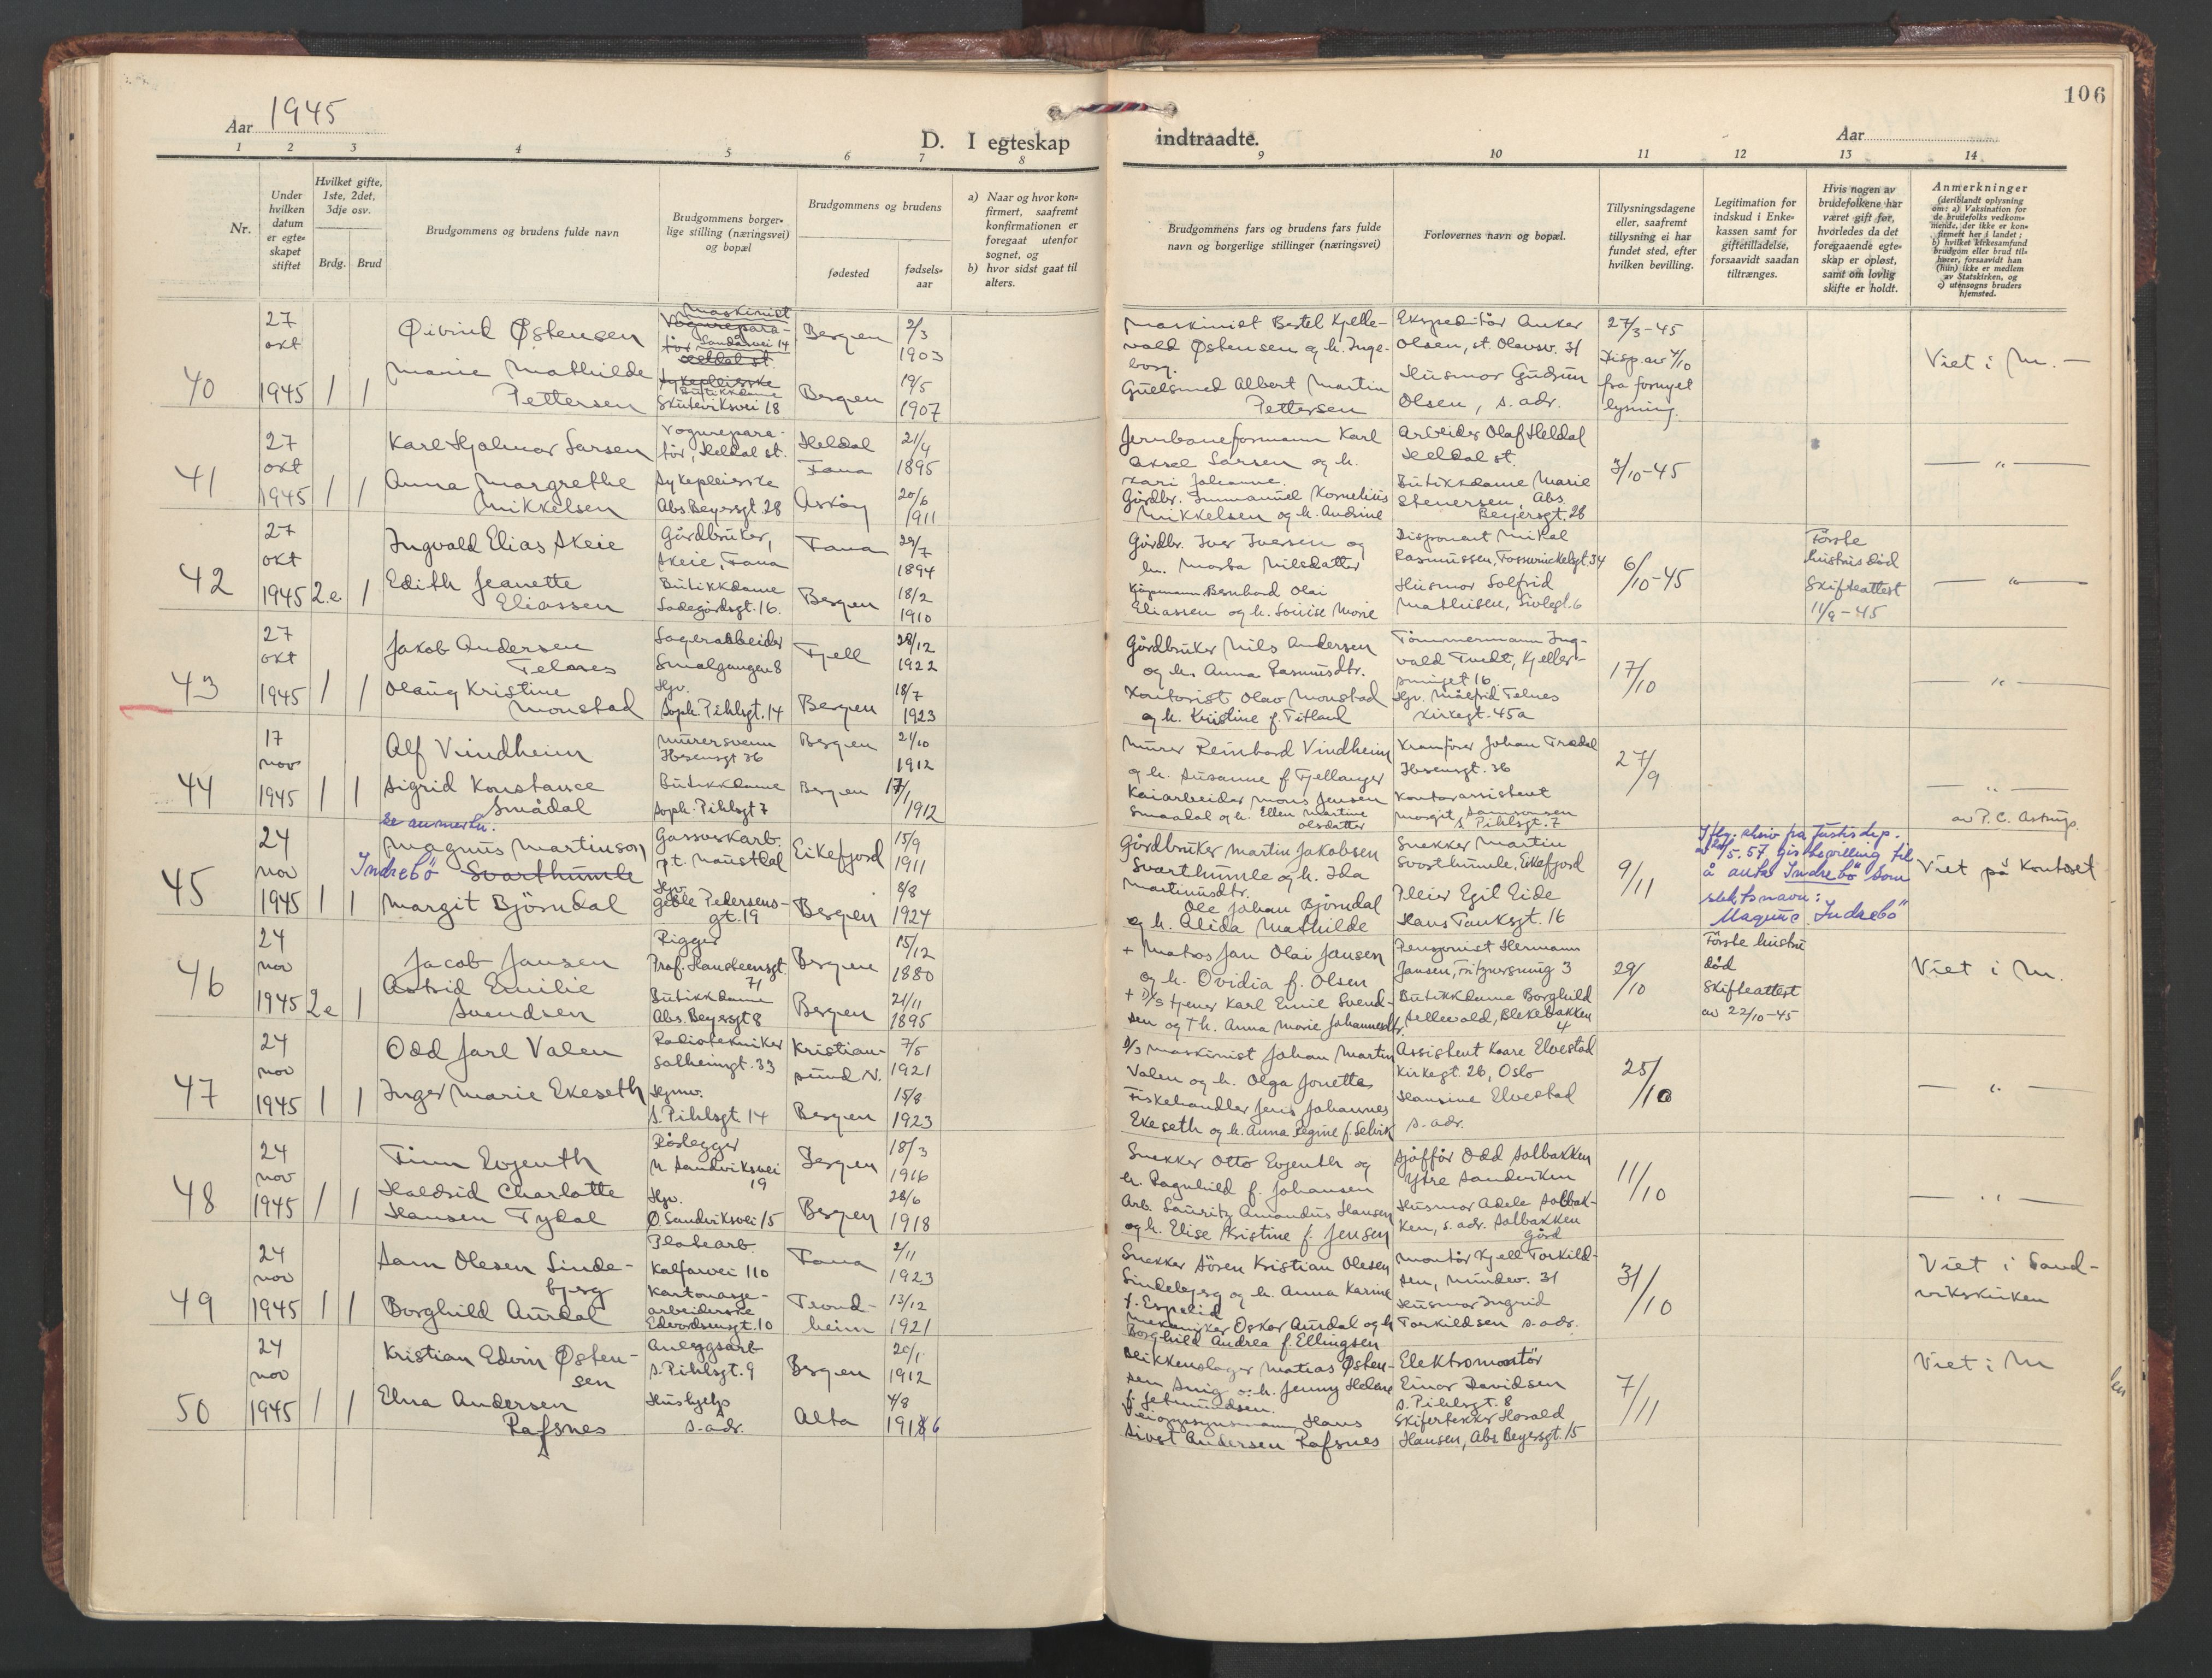 106
Aar 1945
D. I egteskap
indtraadte.
Aar
1 2 3 4 5 6 7 8
9 10 11 12 13 14
Nr.
Under hvilken datum er egteskapet stiftet
Hvilket gifte, 1ste, 2det, 3dje osv.
Brdg. Brud
Brudgommens og brudens fulde navn
Brudgommens borgerlige stilling (næringsvei) og bopæl
Brudgommens og brudens
fødested
fødselsaar
a) Naar og hvor konfirmert, saafremt konfirmationen er foregaat utenfor sognet, og
b) hvor sidst gaat til alters.
Brudgommens fars og brudens fars fulde navn og borgerlige stillinger (næringsvei)
Forlovernes navn og bopæl.
Tillysningsdagene eller, saafremt tillysning ei har fundet sted, efter hvilken bevilling.
Legitimation for indskud i Enkekassen samt for giftetilladelse, forsaavidt saadan tiltrænges.
Hvis nogen av brudefolkene har været gift før, hvorledes da det foregaaende egteskap er opløst, samt om lovlig skifte er holdt.
Anmerkninger (deriblandt oplysning om: a) Vaksination for de brudefolks vedkommende, der ikke er konfirmert her i landet; b) hvilket kirkesamfund brudgom eller brud tilhører, forsaavidt han (hun) ikke er medlem av Statskirken, og c) utensogns bruders hjemsted.
40
27 okt 1945
1 1
Øivind Østensen
Marie Mathilde Pettersen
Maskinist
Vognreparatør
Sandåsvei 14
Heldal st.
Sykepleierske
Butikkdame
Skuteviksvei 18
Bergen 2/3 1903
Bergen 19/5 1907
Maskinist Bertel Kjellevald Østensen og h. Ingeborg.
Gullsmed Albert Martin Pettersen
Ekspeditør Anker Olsen, st. Olavsv. 31
Husmor Gudrun Olsen, s. adr.
27/3-45
Disp. av 4/10 fra fornyet lysning.
Viet i M. —
41
27 okt 1945
1 1
Karl Hjalmar Larsen
Anna Margrethe Mikkelsen
Vognreparatør, Heldal st.
Sykepleierske
Abs. Beyersgt. 28
Heldal Fana 21/4 1895
Askøy 20/6 1911
Jernbaneformann Karl Aksel Larsen og h. Kari Johanne.
Gårdbr. Immanuel Kornelius Mikkelsen og h. Andrine
Arbeider Olaf Heldal
Heldal st.
Butikkdame Marie Stenersen, Abs. Beyersgt. 28
3/10-45
— " —
42
27 okt 1945
2.e 1
Ingvald Elias Skeie
Edith Jeanette Eliassen
Gårdbruker, Skeie, Fana
Butikkdame
Ladegårdsgt. 16.
Fana 29/7 1894
Bergen 18/2 1910
Gårdbr. Iver Iversen og h. Marta Nilsdatter
Kjøpmann Bernhard Olai Eliassen og h. Louise Marie
Disponent Mikal Rasmussen, Fosswinckelsgt. 34
Husmor Solfrid Mathisen, Sivlegt. 6
6/10-45
Første hustru død
Skifteattest
11/9-45
— " —
43
27 okt 1945
1 1
Jakob Andersen Telnes
Olaug Kristine Monstad
Lagerarbeider
Smalgangen 8
Hjv.
Soph. Pihlsgt. 14
Fjell 28/12 1922
Bergen 18/7 1923
Gårdbruker Nils Andersen og h. Anna Rasmusdtr.
Kontorist Olav Monstad og h. Kristine f. Titland
Tømmermann Ingvald Tvedt, Kjellersmuget 16.
Hjv. Målfrid Telnes
Kirkegt. 45a
17/10
— " —
44
17 nov 1945
1 1
Alf Vindheim
Sigrid Konstance Smådal
Murersvenn
Ibsensgt 36
Butikkdame
Soph. Pihlsgt 7
Bergen 21/10 1912
Bergen 17/1 1912
Murer Reinhard Vindheim og h. Susanne f. Fjellanger
Kaiarbeider Mons Jensen Smaadal og h. Ellen Martine Olsdatter
Kranfører Johan Trædal
Ibsensgt. 36
Kontorassistent Margit Samronsen
S. Pihlsgt. 7
27/9
— " —
av P. C. Astrup.
45
24 nov 1945
1 1
se anmerkn.
Magnus Martinson
Indrebö Svarthumle
Margit Björndal
Gassverkarb.
p.t. Naustdal
Hjv.
Gøble Pedersensgt. 19
Eikefjord 15/9 1911
Bergen 8/8 1924
Gårdbruker Martin Jakobsen Svarthumle og h. Ida Martinusdtr.
Ole Johan Björndal og h. Alida Mathilde
Snekker Martin Svarthumle, Eikefjord
Pleier Egil Eide
Hans Tanksgt. 16
9/11
Iflg. skriv fra Justisdep. av 24/5.57 gis bevilling til å anta Indrebö som slektsnavn:
"Magnus Indrebö"
Viet på kontoret
46
24 nov 1945
2e 1
Jacob Jansen
Astrid Emilie Svendsen
Rigger
Prof. Hansteensgt. 71
Butikkdame
Abs. Beyersgt 8
Bergen 15/12 1880
Bergen 21/11 1895
+ Matros Jan Olai Jansen og h. Ovidia f. Olsen
+ D/S tjener Karl Emil Svendsen og + h. Anna Marie Johannesdtr.
Pensjonist Hermann Jansen, Fritznersmug 3
Butikkdame Borghild Sellevold, Blekebakken 4
29/10
Første hustru død
Skifteattest
av 22/10-45
Viet i M.
47
24 nov 1945
1 1
Odd Jarl Valen
Inger Marie Ekeseth
Radiotekniker
Solheimgt. 33
Hjmv.
S. Pihlsgt 14
Kristiansund N. 7/5 1921
Bergen 15/8 1923
D/S maskinist Johan Martin Valen og h. Olga Jonette
Fiskehandler Jens Johannes Ekeseth og h. Anna Regine f. Selvik
Assistent Kaare Elvestad
Kirkegt. 26, Oslo
Hansine Elvestad
s. adr.
25/10
— " —
48
24 nov 1945
1 1
Finn Evjenth
Haldrid Charlotte Hansen Tydal
Rørlegger
N. Sandviksvei 19
Hjv.
Ø. Sandviksvei 15
Bergen 18/3 1916
Bergen 28/6 1918
Snekker Otto Evjenth og h. Ragnhild f. Johansen
Arb. Lauritz Amandus Hansen og h. Elise Kristine f. Jensen
Sjåffør Odd Solbakken
Ytre Sandviken
Husmor Adele Solbakken, s. adr. Solbakken Gård
11/10
— " —
49
24 nov 1945
1 1
Sam Olesen Lindebjerg
Borghild Aurdal
Platearb.
Kalfarvei 110
Kartonasjearbeiderske
Edvardsensgt. 10
Fana 2/11 1923
Trondheim 13/12 1921
Snekker Sören Kristian Olesen Lindebjerg og h. Anna Karine f. Espelid
Mekaniker Oskar Aurdal og h. Borghild Andrea f. Ellingsen
Montør Kjell Torkildsen, Mindev. 31
Husmor Ingrid Torkildsen s. adr.
31/10
Viet i Sandvikskirken
50
24 nov 1945
1 1
Kristian Edvin Østensen
Elna Andersen Rafsnes
Anleggsarb
S. Pihlsgt. 9
Hushjelp
s. adr.
Bergen 20/1 1912
Alta 4/8 1916
Blikkenslager Matias Østensen Snig o. h. Jenny Helene f. Jetmundsen.
Veiopsynsmann Hans Sivert Andersen Rafsnes
Elektromontör Einar Davidsen
S. Pihlsgt. 8
Skifertekker Harald Hansen, Abs Beyersgt. 15
7/11
Viet i M